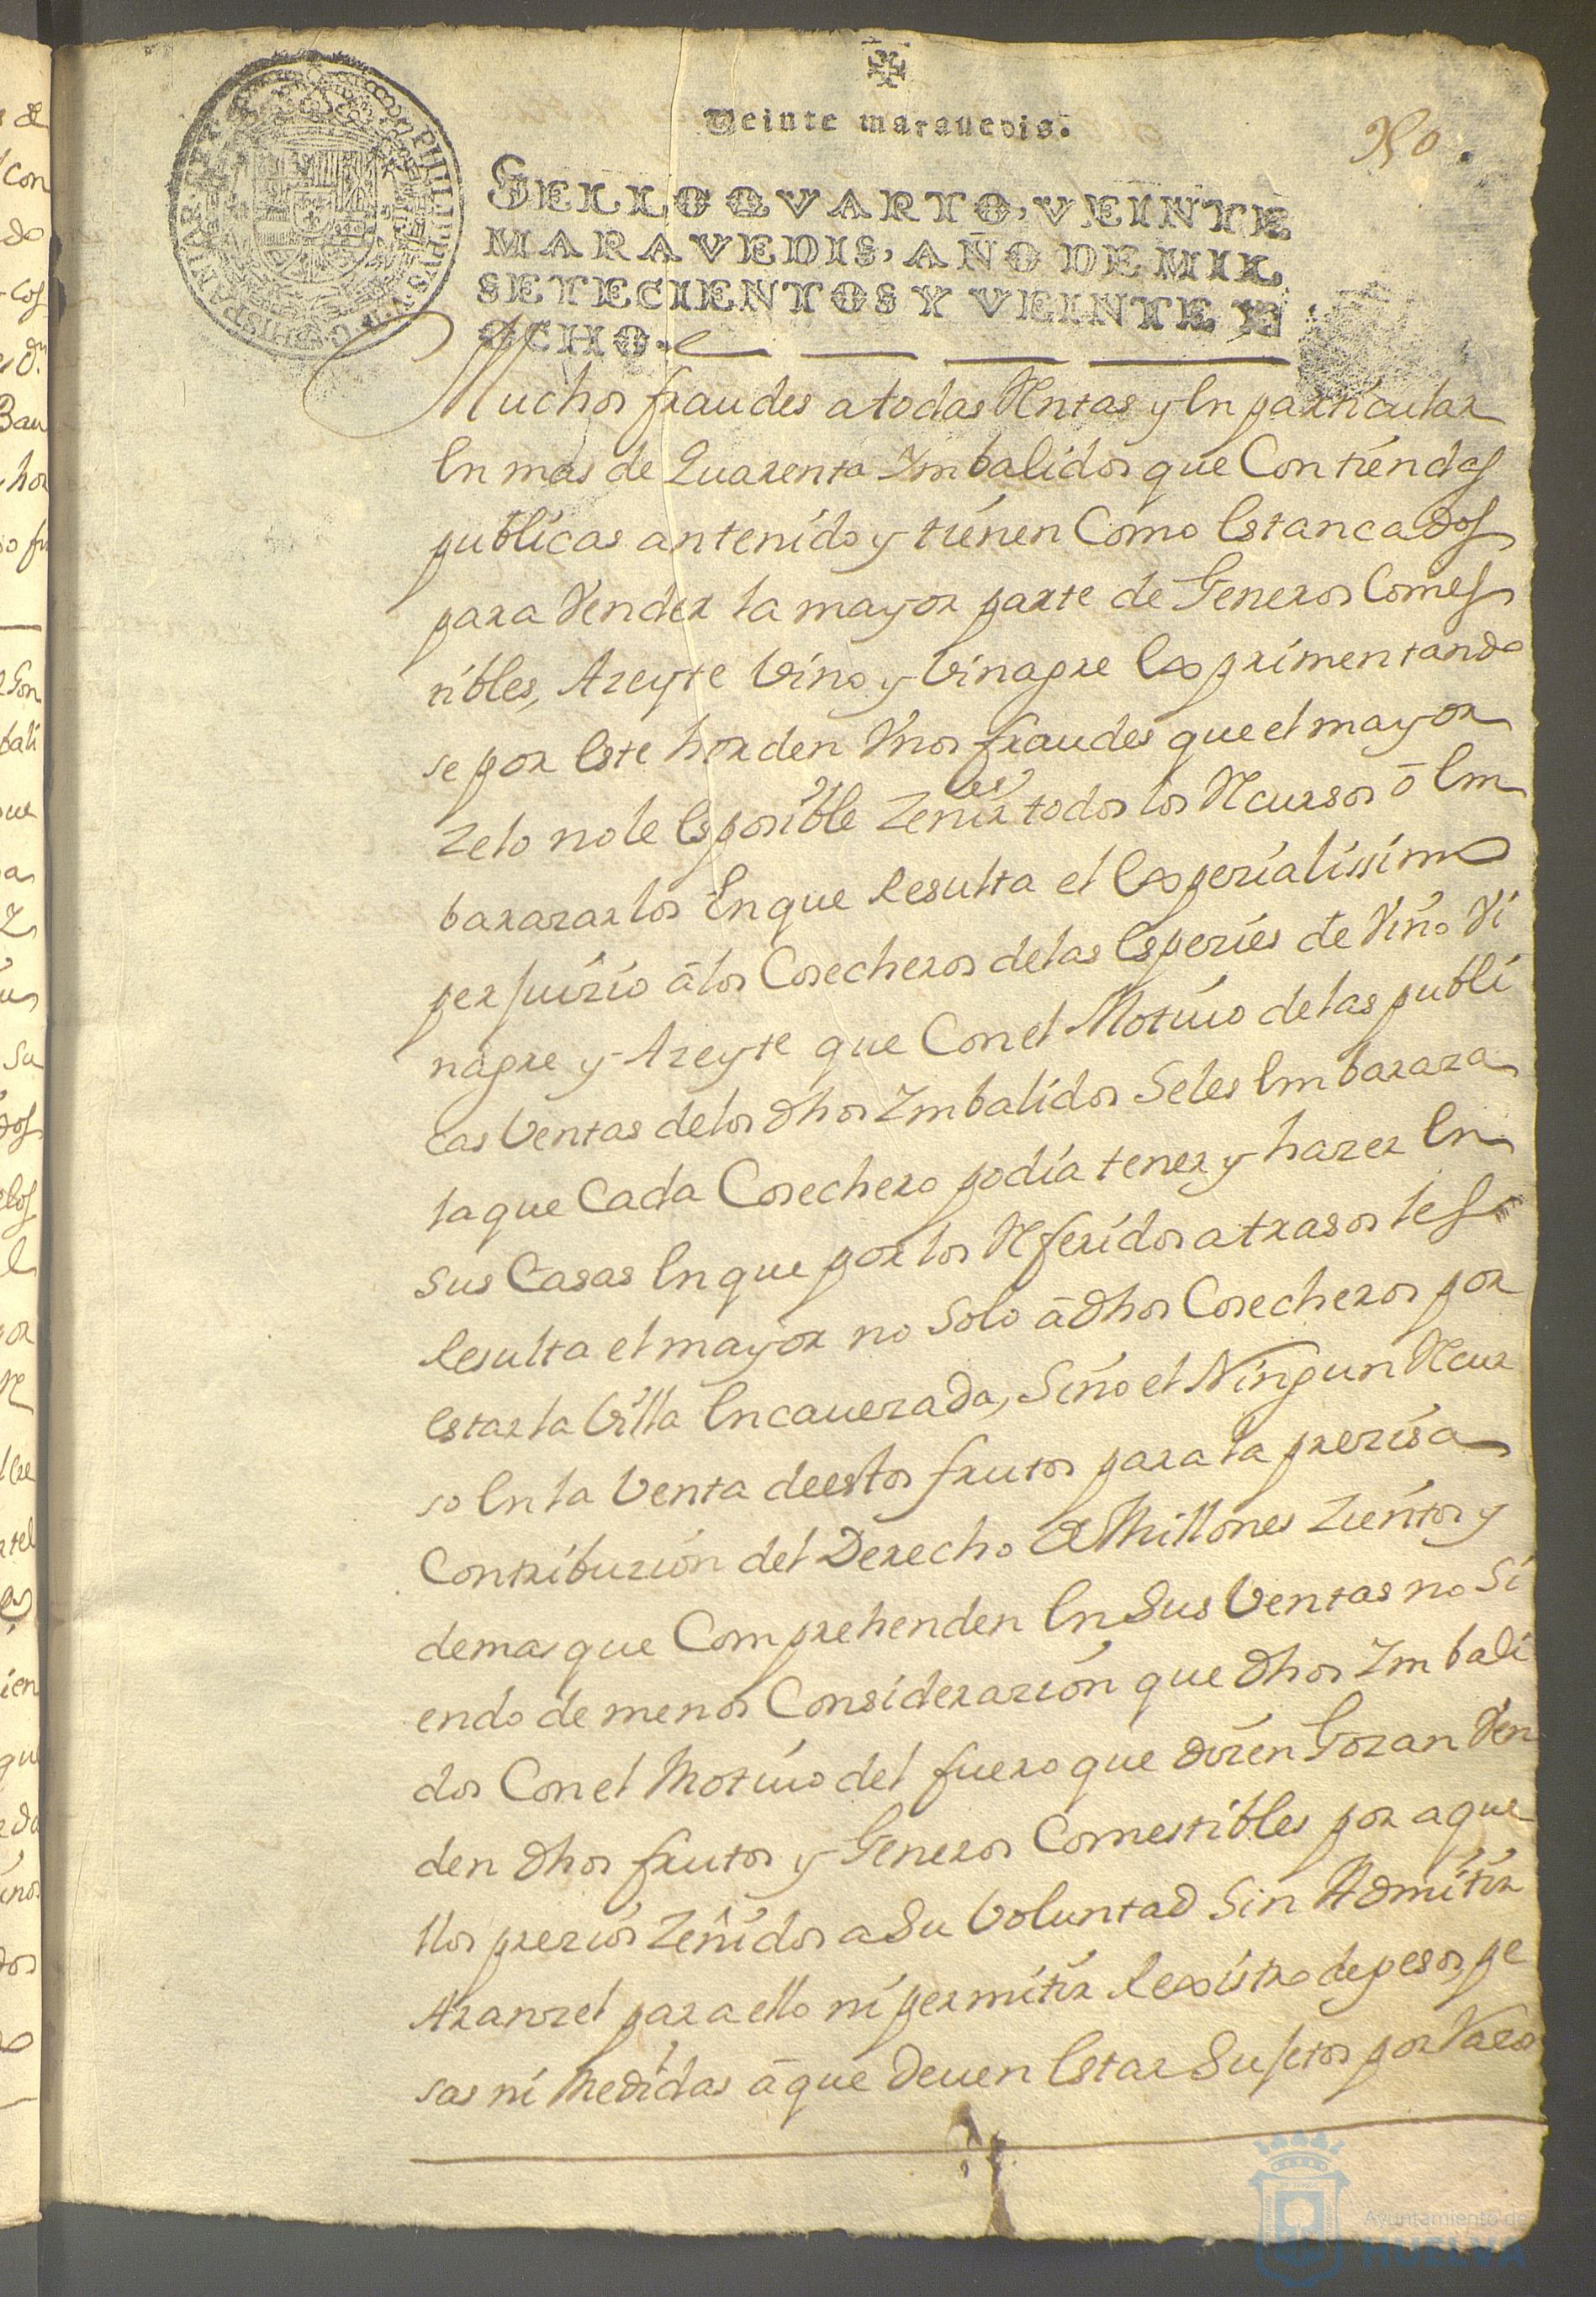 Veinte marauedis.
SELLO QVARTO, VEINTE
MARAVEDIS, AÑO DE MIL
SETECIENTOS Y VEINTE Y
OCHO.
Muchos fraudes a todas Rentas y En particular
En mas de Quarenta Imbalidos que Con tiendas
publicas an tenido y tienen Como Estancados
para Vender la mayor parte de Generos Comes
tibles, Azeyte Vino y Vinagre Exprimentando
se por Este horden Vnos fraudes que el mayor
Zelo no le Es posible Zeñir todos los Recursos ō Em
barazarlos En que Resulta el Expezialissimo
perjuizio ā los Cosecheros de las Espezies de Vino Vi
nagre y Azeyte que Con el Motiuo de las publi
cas Ventas de los dhos Imbalidos Se les Embaraza
la que Cada Cosechero podia tener y hazer En
sus Casas En que por los Referidos atrasos les
Resulta el mayor no solo ā dhos Cosecheros por
Estar la Villa Encauezada, Sino el Ningun Recur
so En la Venta de estos frutos para la prezisa
Contribuzion del Derecho de Millones Zientos y
demas que Comprehenden En Sus Ventas no Si
endo de menos Considerazion que dhos Imbali
dos Con el Motiuo del fuero que dizen Gozan Ven
den dhos frutos y Generos Comestibles por aque
llos prezios Zeñidos a Su Voluntad Sin Admitir
Aranzel para ello ni permitir Rexistro de pesos, pe
sas ni Medidas ā que Deuen Estar Sujetos por Razon
Ayuntamiento de
HUELVA